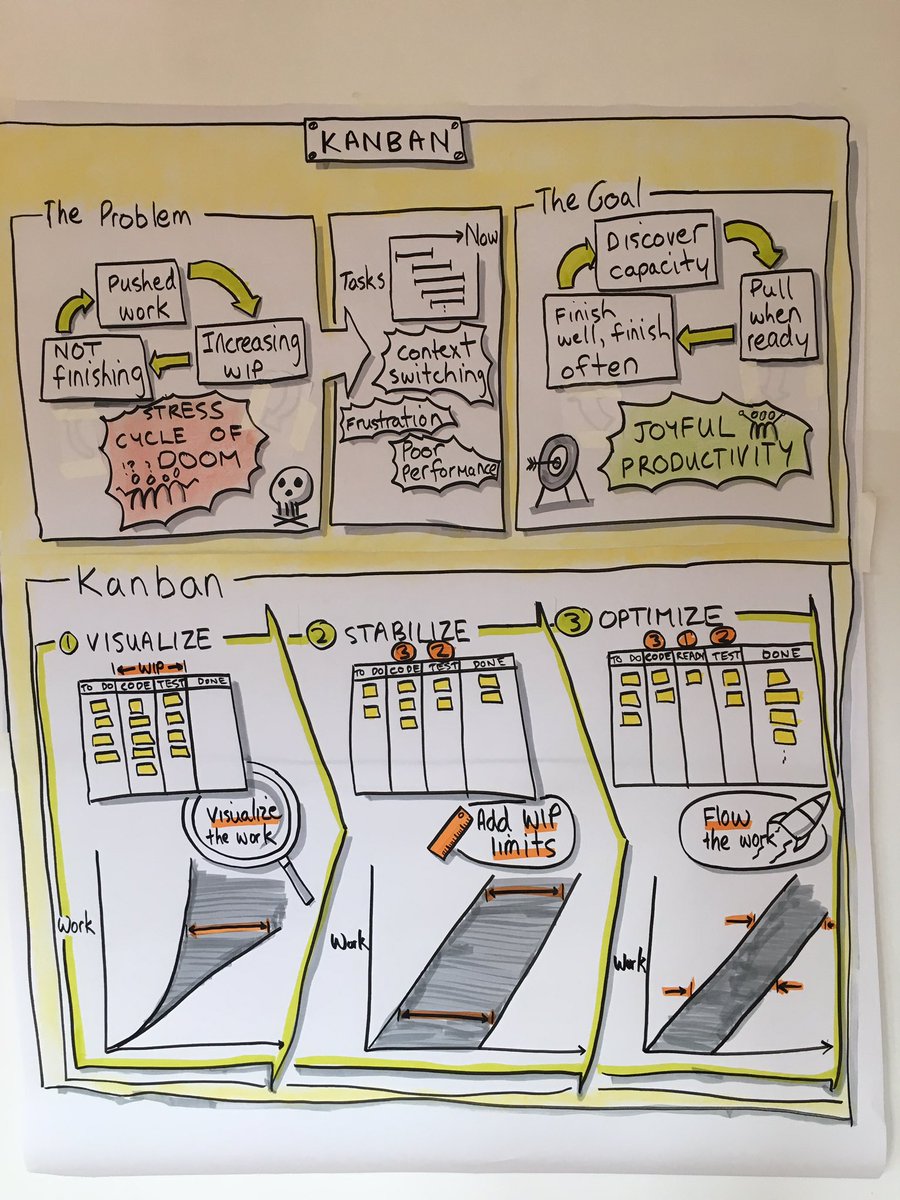 KANBAN
The Problem
Pushed
work
Increasing
WIP
NOT
finishing
STRESS
CYCLE OF
DOOM
!? ?
Now
Tasks
Context
switching
Frustration
Poor
Performance
The Goal
Discover
capacity
Pull
when
ready
Finish
well, finish
often
JOYFUL
PRODUCTIVITY
Kanban
1 VISUALIZE
WIP
TO DO CODE TEST DONE
Visualize
the work
Work
2 STABILIZE
3 2
TO DO CODE TEST DONE
Add WIP
limits
Work
3 OPTIMIZE
3 1 2
TO DO CODE READY TEST DONE
Flow
the work
Work